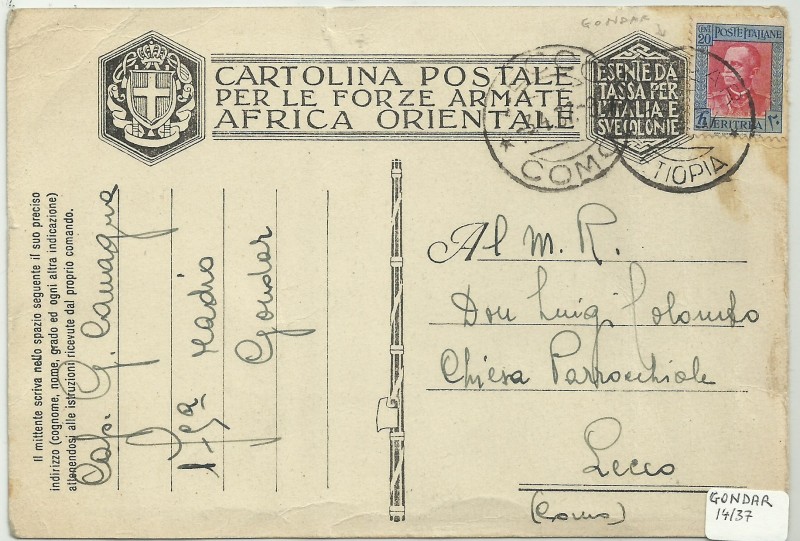 GONDAR
CARTOLINA POSTALE
PER LE FORZE ARMATE
AFRICA ORIENTALE
ESENTE DA
TASSA PER
L'ITALIA E
SVE COLONIE
CENT 20
POSTE ITALIANE
ERITREA
COMO
TIOPIA
Il mittente scriva nello spazio seguente il suo preciso
indirizzo (cognome, nome, grado ed ogni altra indicazione)
attenendosi alle istruzioni ricevute dal proprio comando.
Cap. G.
radio
Gondar
Al M. R.
Don Luigi Colombo
Chiesa Parrocchiale
Lecco
(Como)
GONDAR
14/37